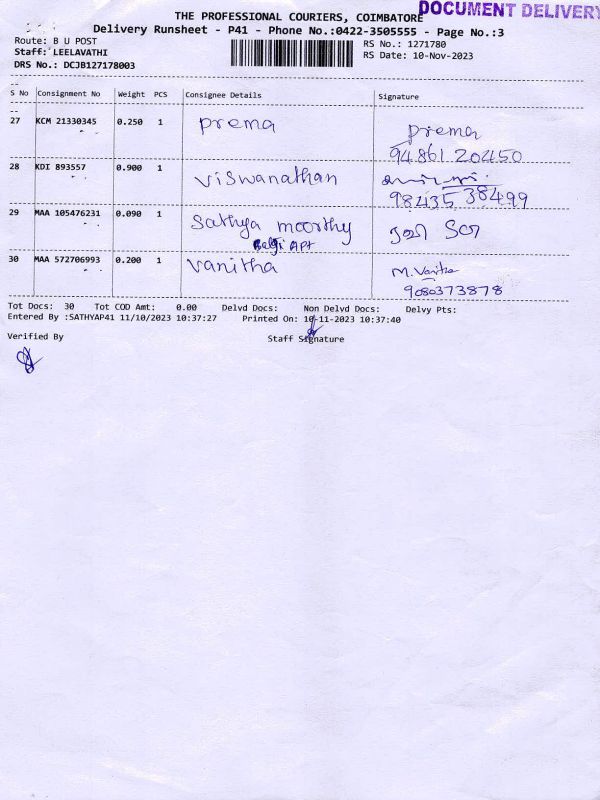 DOCUMENT DELIVERY
THE PROFESSIONAL COURIERS, COIMBATORE
Delivery Runsheet - P41 - Phone No.:0422-3505555 - Page No.:3
Route: B U POST RS No.: 1271780
Staff: LEELAVATHI RS Date: 10-Nov-2023
DRS No.: DCJB127178003
S No Consignment No Weight PCS Consignee Details Signature
27 KCM 21330345 0.250 1 Prema Prema
94861 20450
28 KDI 893557 0.900 1 Viswanathan
98435 38499
29 MAA 105476231 0.090 1 Sathya moorthy
Apt
30 MAA 572706993 0.200 1 Vanitha M. Vanitha
9080373878
Tot Docs: 30 Tot COD Amt: 0.00 Delvd Docs: Non Delvd Docs: Delvy Pts:
Entered By :SATHYAP41 11/10/2023 10:37:27 Printed On: 10-11-2023 10:37:40
Verified By Staff Signature